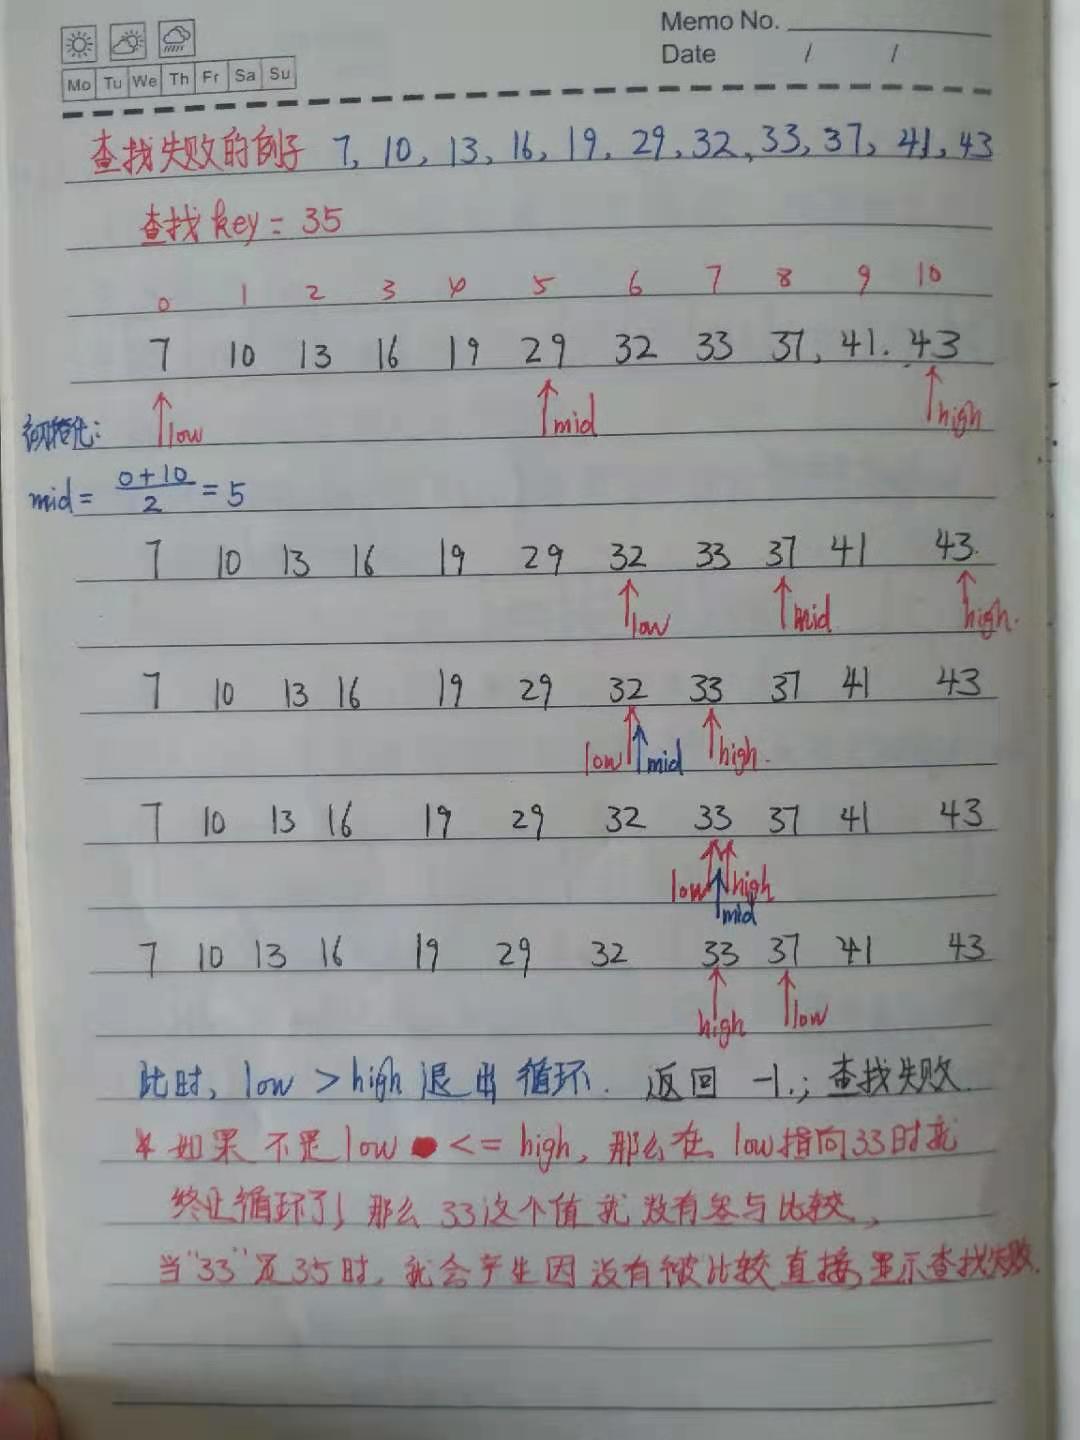 Memo No.
Date / /
Mo Tu We Th Fr Sa Su
查找失败的例子 7, 10, 13, 16, 19, 29, 32, 33, 37, 41, 43
查找key=35
0 1 2 3 4 5 6 7 8 9 10
7 10 13 16 19 29 32 33 37, 41. 43
初始化: low mid high
mid = (0+10)/2 = 5
7 10 13 16 19 29 32 33 37 41 43.
low mid high.
7 10 13 16 19 29 32 33 37 41 43
low mid high.
7 10 13 16 19 29 32 33 37 41 43
low high
mid
7 10 13 16 19 29 32 33 37 41 43
high low
此时, low > high 退出 循环. 返回 -1.; 查找失败.
* 如果 不是 low <= high, 那么在 low指向33时就
终止循环了, 那么 33这个值就 没有参与比较,
当"33"是35时, 就会产生因没有被比较直接显示查找失败.